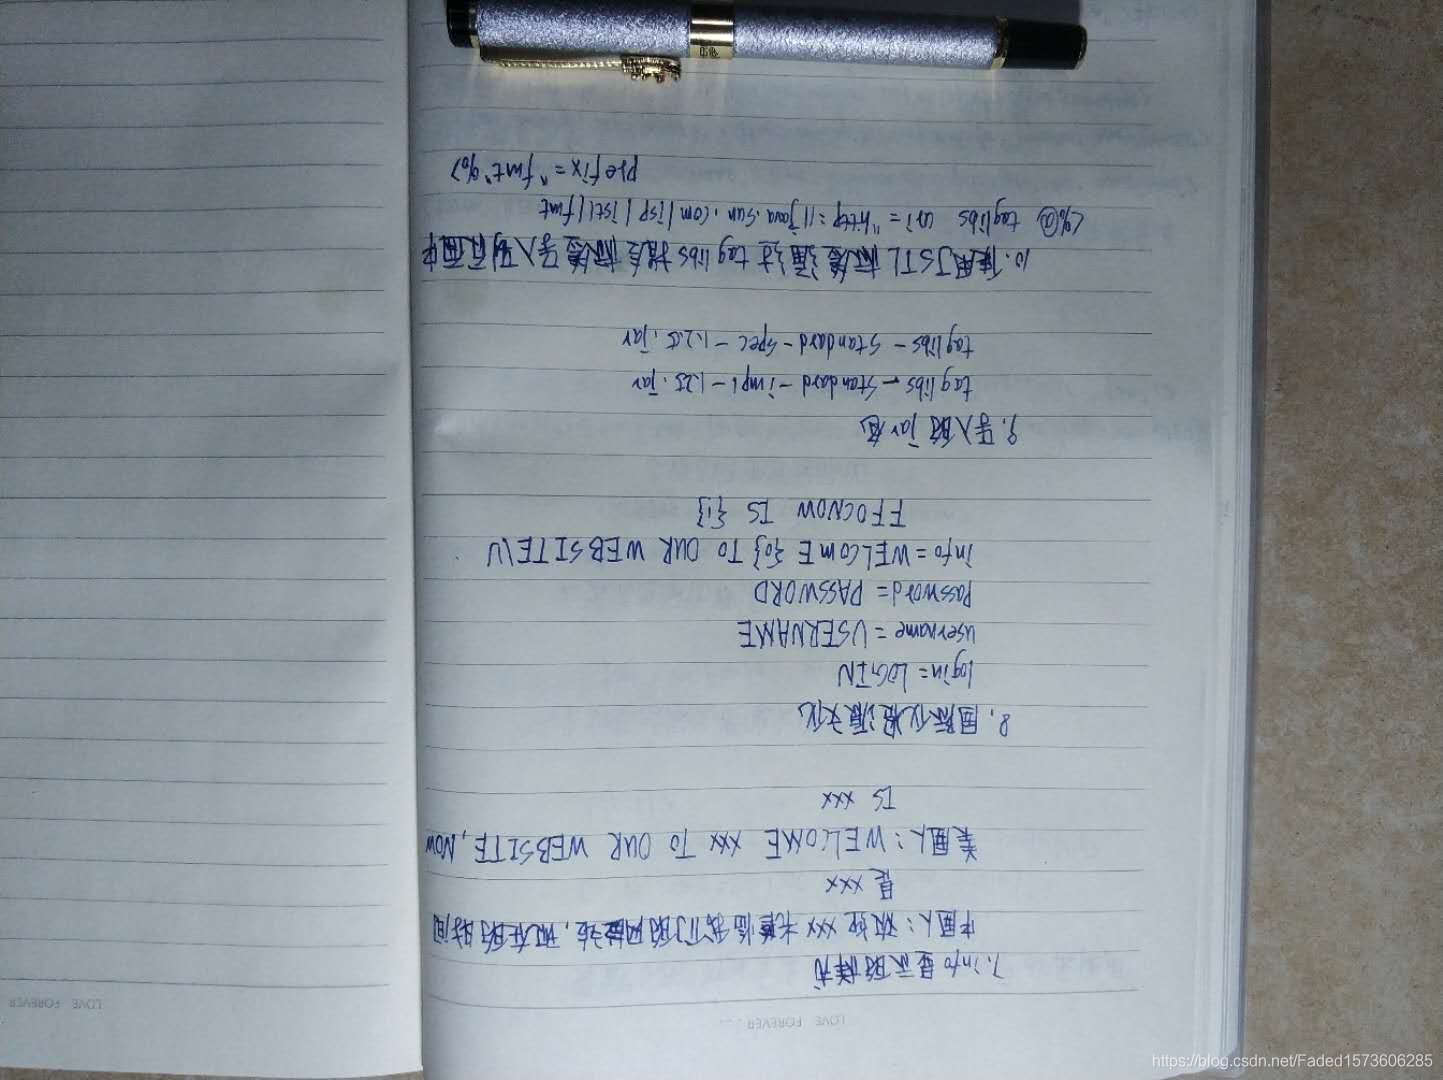 LOVE FOREVER...
7. info显示的样式
中国人：欢迎 xxx 光临我们的网站，现在的时间
是 xxx
美国人：WELCOME xxx TO OUR WEBSITE, NOW
IS xxx
8. 国际化资源文化
login = LOGIN
username = USERNAME
password = PASSWORD
info = WELCOME {0} TO OUR WEBSITE \U
FFOCNOW IS {1}
9. 导入的 jar包
taglibs - Standard - impl - 1.25.jar
taglibs - Standard - spec - 1.2.5.jar
10. 使用JSTL标签通过 taglibs指令标签导入到页面中
<%@ taglibs uri = "http://java.sun.com/jsp/jstl/fmt
prefix = "fmt"%>
LOVE FOREVER
https://blog.csdn.net/Faded1573606285